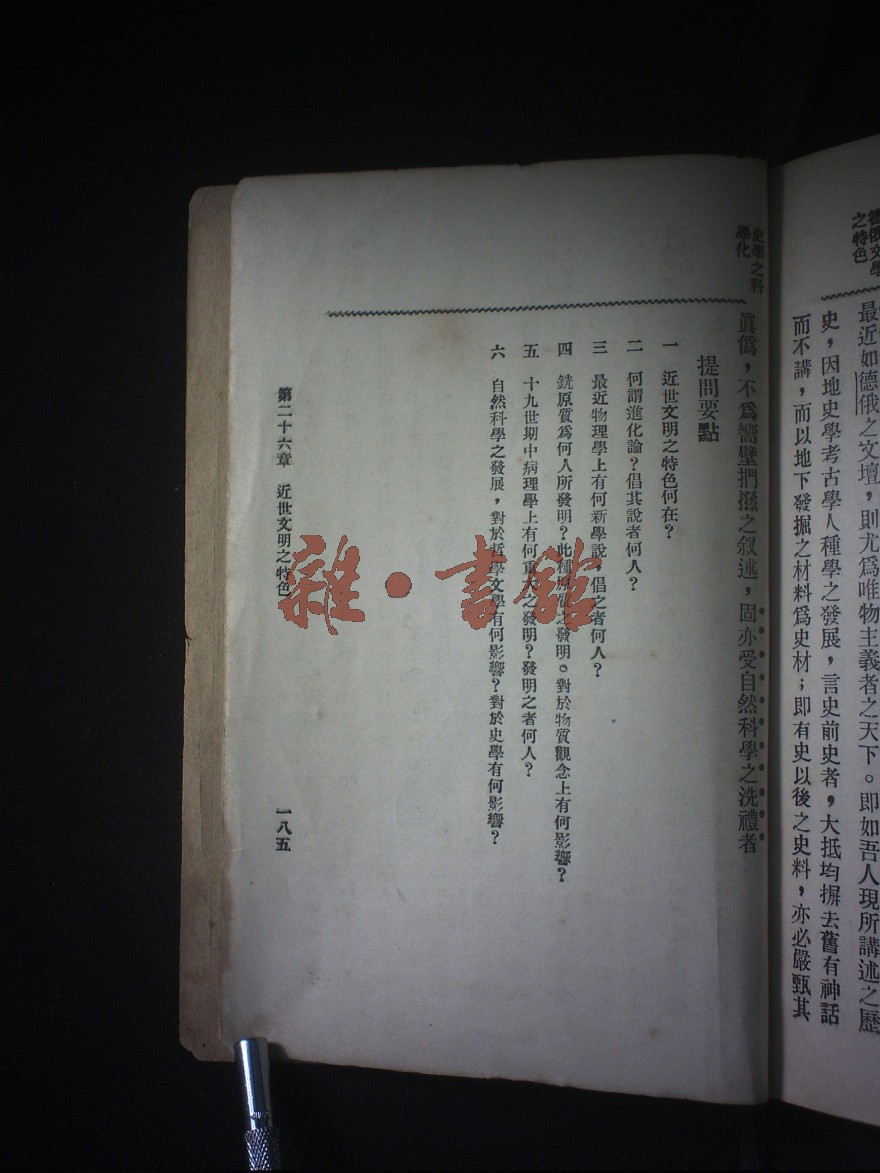 德俄文學
之特色
最近如德俄之文壇，則尤爲唯物主義者之天下。即如吾人現所講述之歷
史，因地史學考古學人種學之發展，言史前史者，大抵均摒去舊有神話
而不講，而以地下發掘之材料爲史材；即有史以後之史料，亦必嚴甄其
史學之科
學化
眞僞，不爲嚮壁捫㨫之叙述，固亦受自然科學之洗禮者
提問要點
一　近世文明之特色何在？
二　何謂進化論？倡其說者何人？
三　最近物理學上有何新學說？倡之者何人？
四　銧原質爲何人所發明？此種原質之發明。對於物質觀念上有何影響？
五　十九世期中病理學上有何重大之發明？發明之者何人？
六　自然科學之發展，對於哲學文學有何影響？對於史學有何影響？
第二十六章　近世文明之特色
一八五
雜·書館